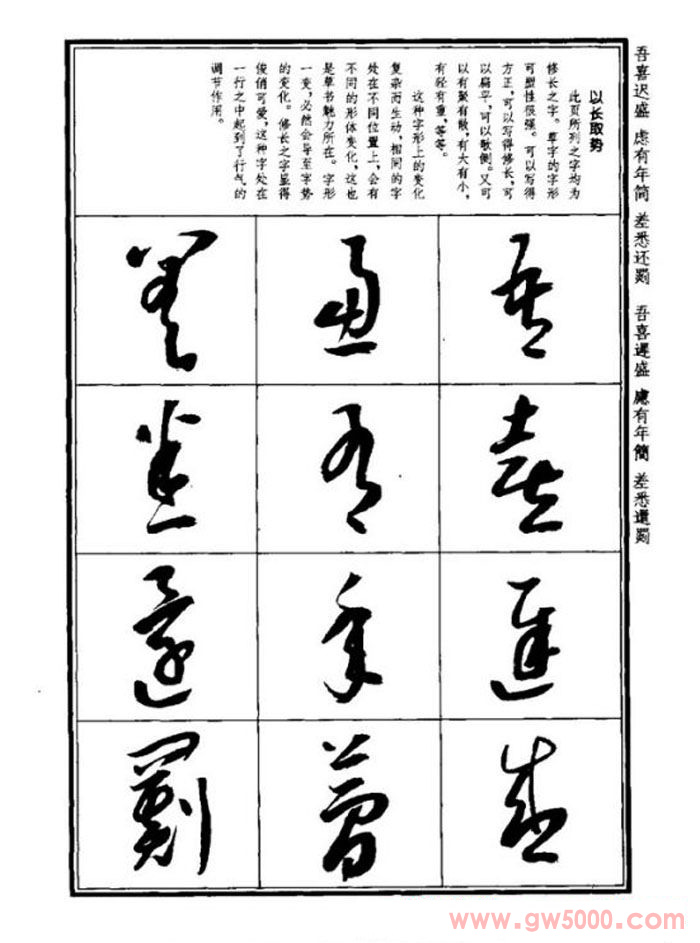 吾喜迟盛 虑有年简 差悉还罚 吾喜遲盛 慮有年簡 差悉還罰
以长取势
此页所列之字均为
修长之字。草字的字形
可塑性很强。可以写得
方正,可以写得修长,可
以扁平,可以欹侧。又可
以有聚有散,有大有小,
有轻有重,等等。
这种字形上的变化
复杂而生动,相同的字
处在不同位置上,会有
不同的形体变化,这也
是草书魅力所在。字形
一变,必然会导至字势
的变化。修长之字显得
俊俏可爱,这种字处在
一行之中起到了行气的
调节作用。
吾喜遲盛
慮有年簡
差悉還罰
www.gw5000.com